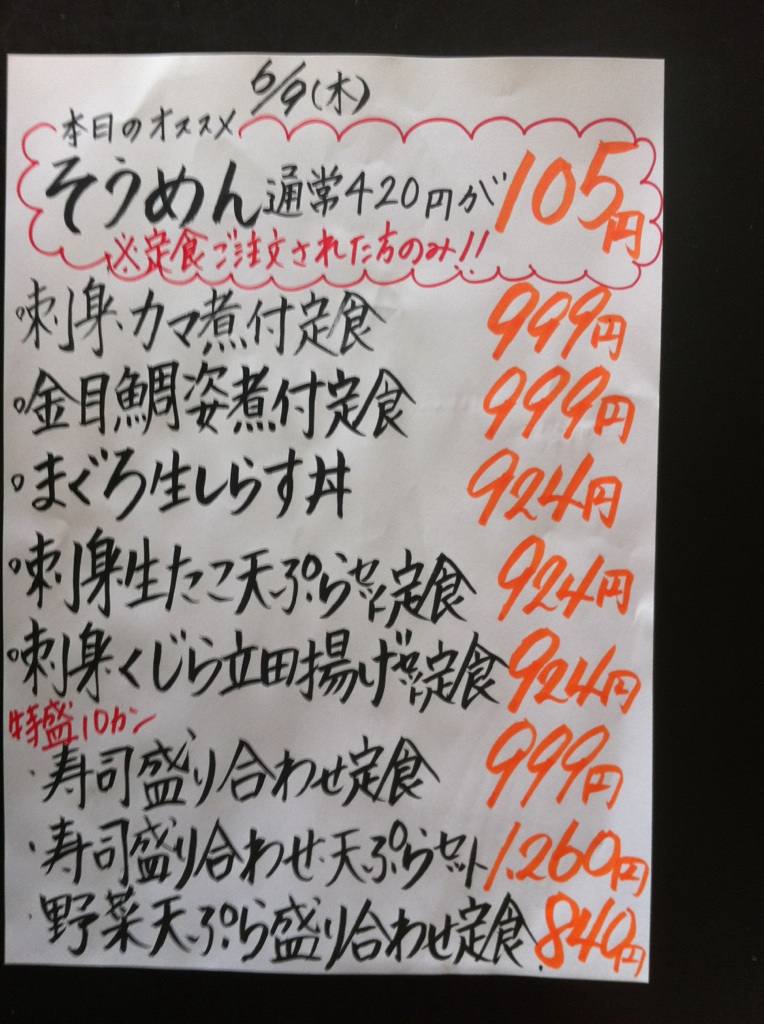 6/9(木)
本日のオススメ
そうめん通常420円が105円
※定食ご注文された方のみ!!
・刺身カマ煮付定食 999円
・金目鯛姿煮付定食 999円
・まぐろ生しらす丼 924円
・刺身生たこ天ぷらセット定食 924円
・刺身くじら立田揚げセット定食 924円
特盛10カン
・寿司盛り合わせ定食 999円
・寿司盛り合わせ天ぷらセット 1.260円
・野菜天ぷら盛り合わせ定食 840円